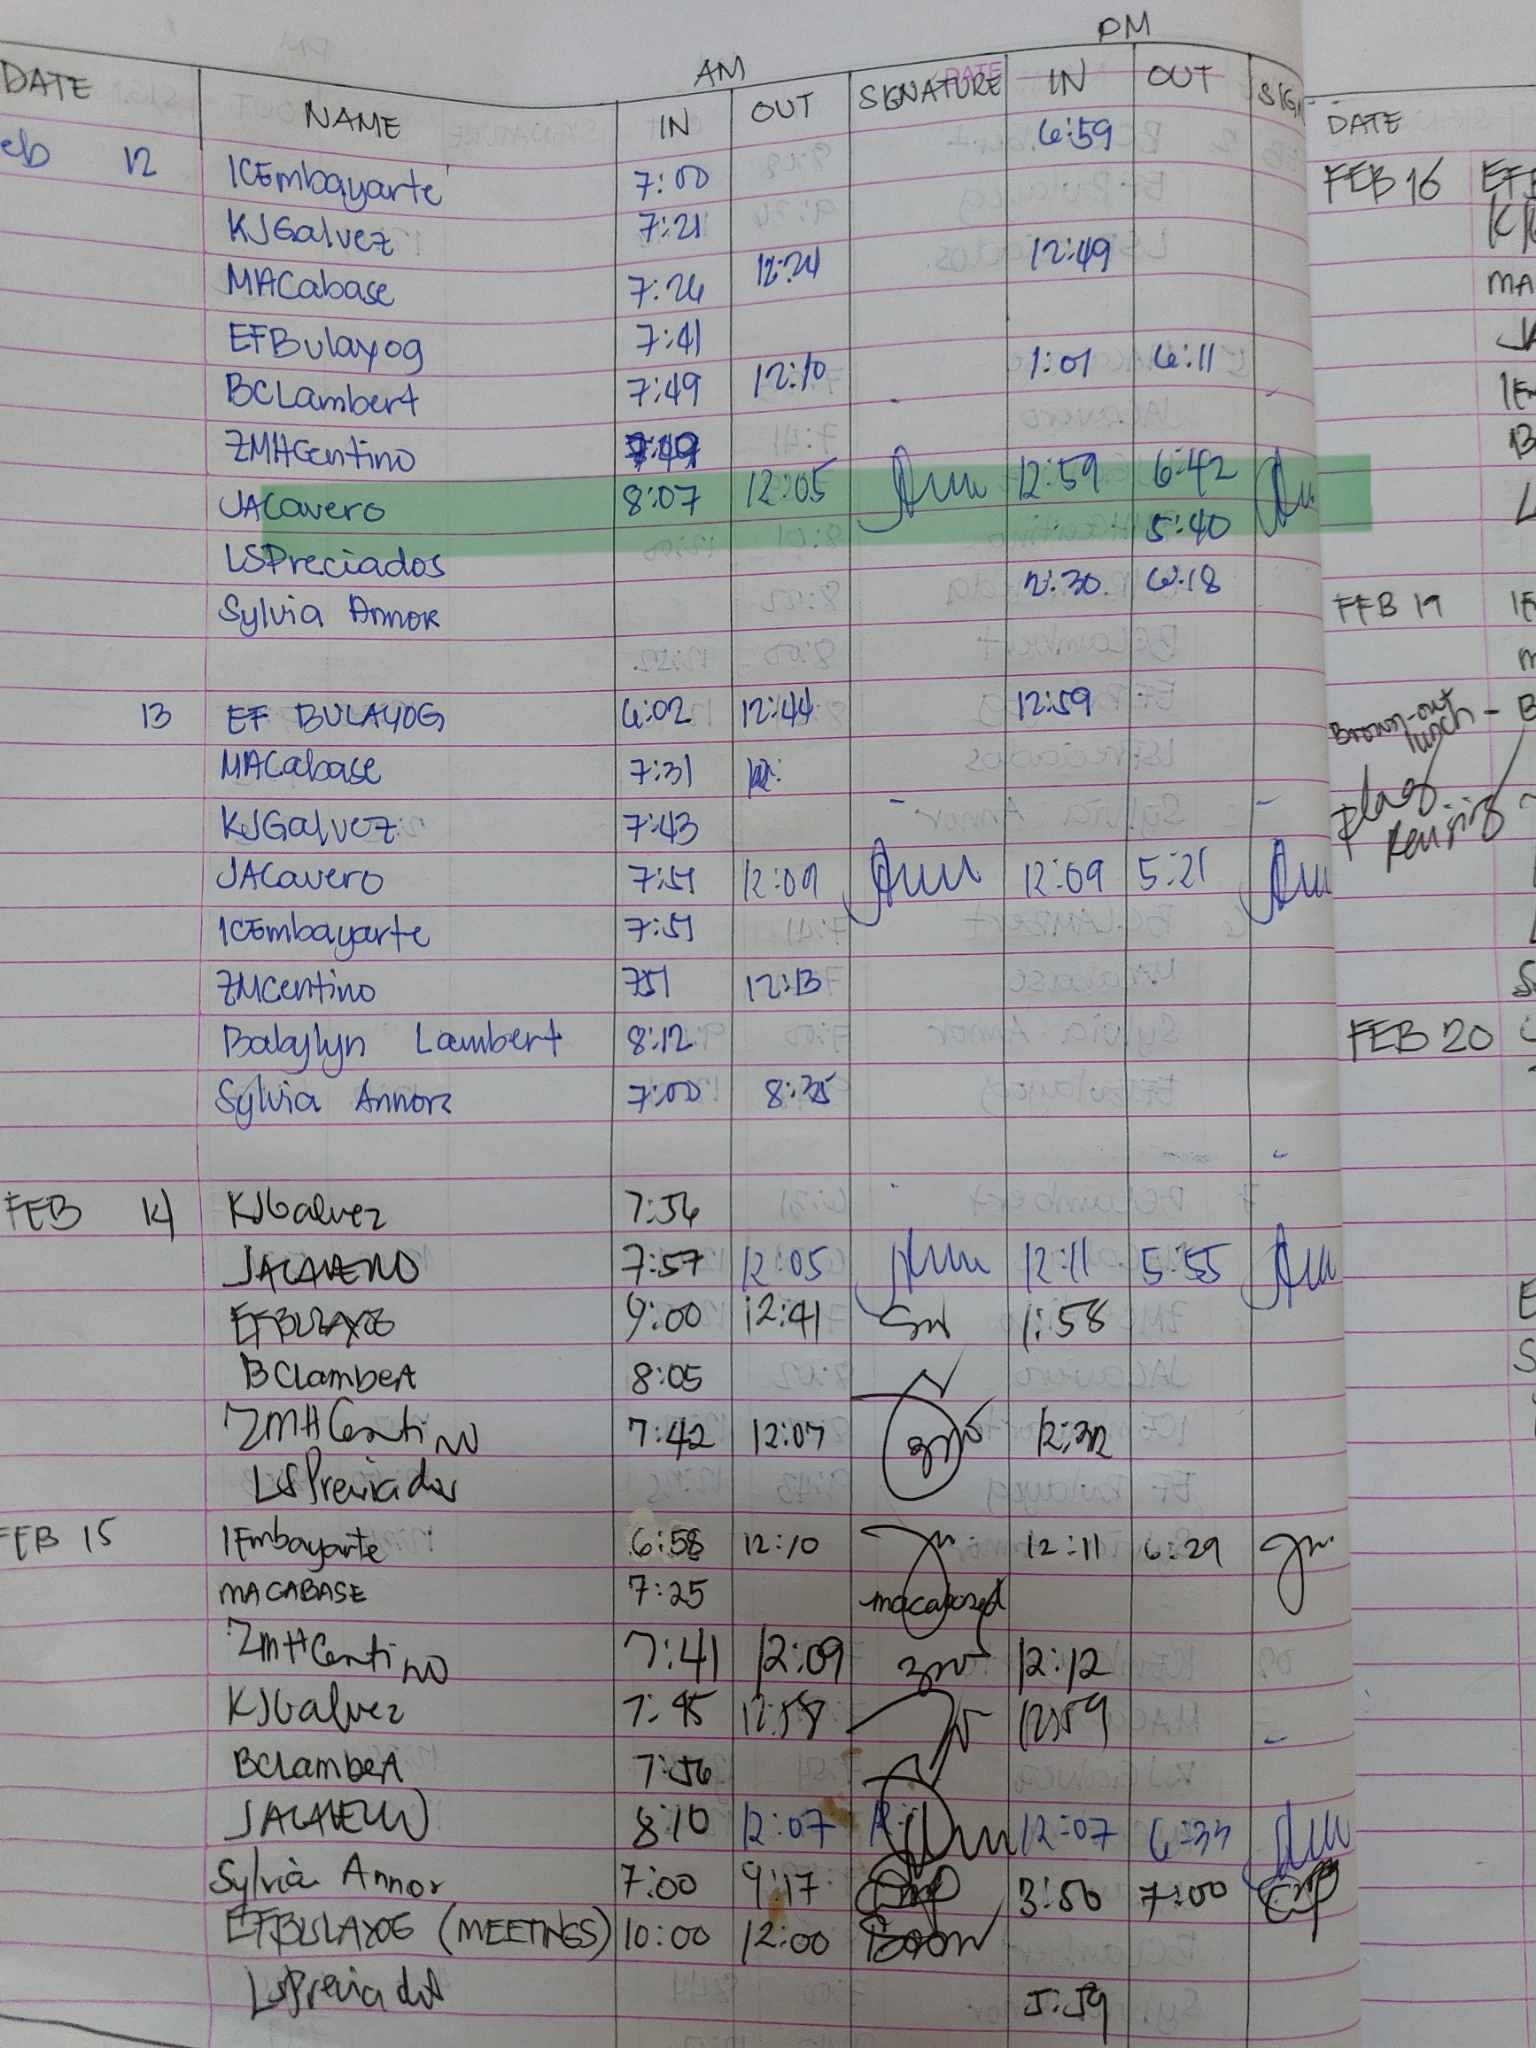 PM
AM
DATE NAME IN OUT SIGNATURE IN OUT SIGN
eb 12 ICEmbayarte 7:00 6:59
KJGalvez 7:21
MACabase 7:26 12:24 12:49
EFBulayog 7:41
BCLambert 7:49 12:10 1:01 6:11
ZMHCentino 7:49
JACavero 8:07 12:05 12:59 6:42
LSPreciados 5:40
Sylvia Annor 2:30 6:18
13 EF BULAYOG 6:02 12:44 12:59
MACabase 7:31
KJGalvez 7:43
JACavero 7:51 12:09 12:09 5:21
ICEmbayarte 7:51
ZMCentino 751 12:13
Babylyn Lambert 8:12
Sylvia Annor 7:00 8:35
FEB 14 KJGalvez 7:56
JACAVERO 7:57 12:05 12:11 5:55
EFBULAYOG 9:00 12:41 1:58
BCLambert 8:05
ZMHCentino 7:42 12:07 12:32
LSPreciados
FEB 15 IEmbayarte 6:58 12:10 12:11 6:29
MACABASE 7:25 macabased
ZMHCentino 7:41 12:09 12:12
KJGalvez 7:45 12:58 12:59
BCLambert 7:56
JACAVERO 8:10 12:07 12:07 6:33
Sylvia Annor 7:00 9:17 3:50 7:00
EFBULAYOG (MEETINGS) 10:00 12:00
LSPreciados 5:59
DATE
FEB 16 EFB
MA
JA
FEB 19
Brown-out
lunch - B
Flag
Raising
FEB 20